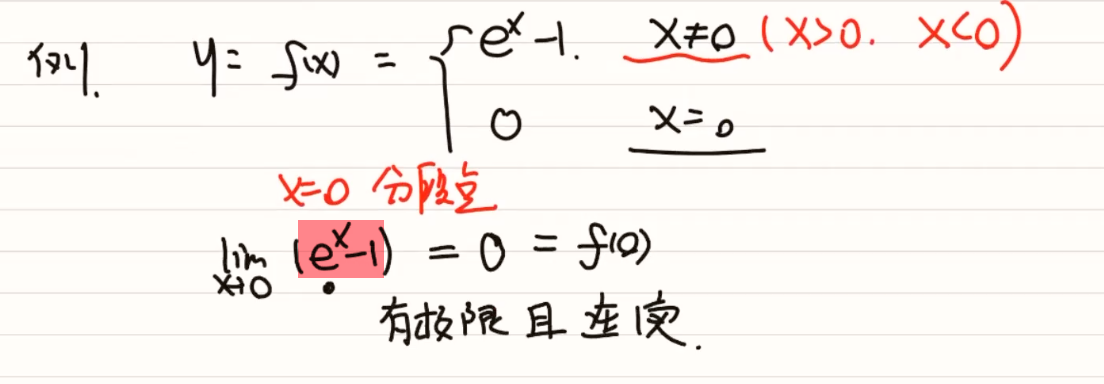 例1. y = f(x) = { e^x -1. x≠0 (x>0. x<0)
0 x=0
x=0 分段点
lim x→0 (e^x-1) = 0 = f(0)
有极限且连续.